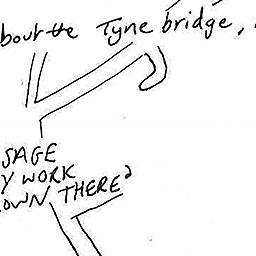 bout the Tyne bridge,
SAGE
Y WORK
OWN THERE?